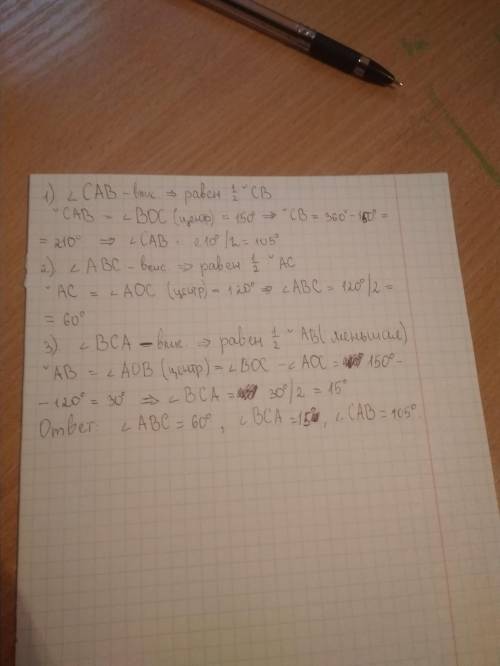 1) ∠CAB - впис. ⇒ равен ½ ◡CB
◡CAB = ∠BOC (центр) = 150° ⇒ ◡CB = 360° - 150° =
= 210° ⇒ ∠CAB = 210°/2 = 105°
2) ∠ABC - впис ⇒ равен ½ ◡AC
◡AC = ∠AOC (центр) = 120° ⇒ ∠ABC = 120°/2 =
= 60°
3) ∠BCA - впис. ⇒ равен ½ ◡AB (меньшая)
◡AB = ∠AOB (центр) = ∠BOC - ∠AOC = 150° -
- 120° = 30° ⇒ ∠BCA = 30°/2 = 15°
Ответ: ∠ABC = 60°, ∠BCA = 15°, ∠CAB = 105°.